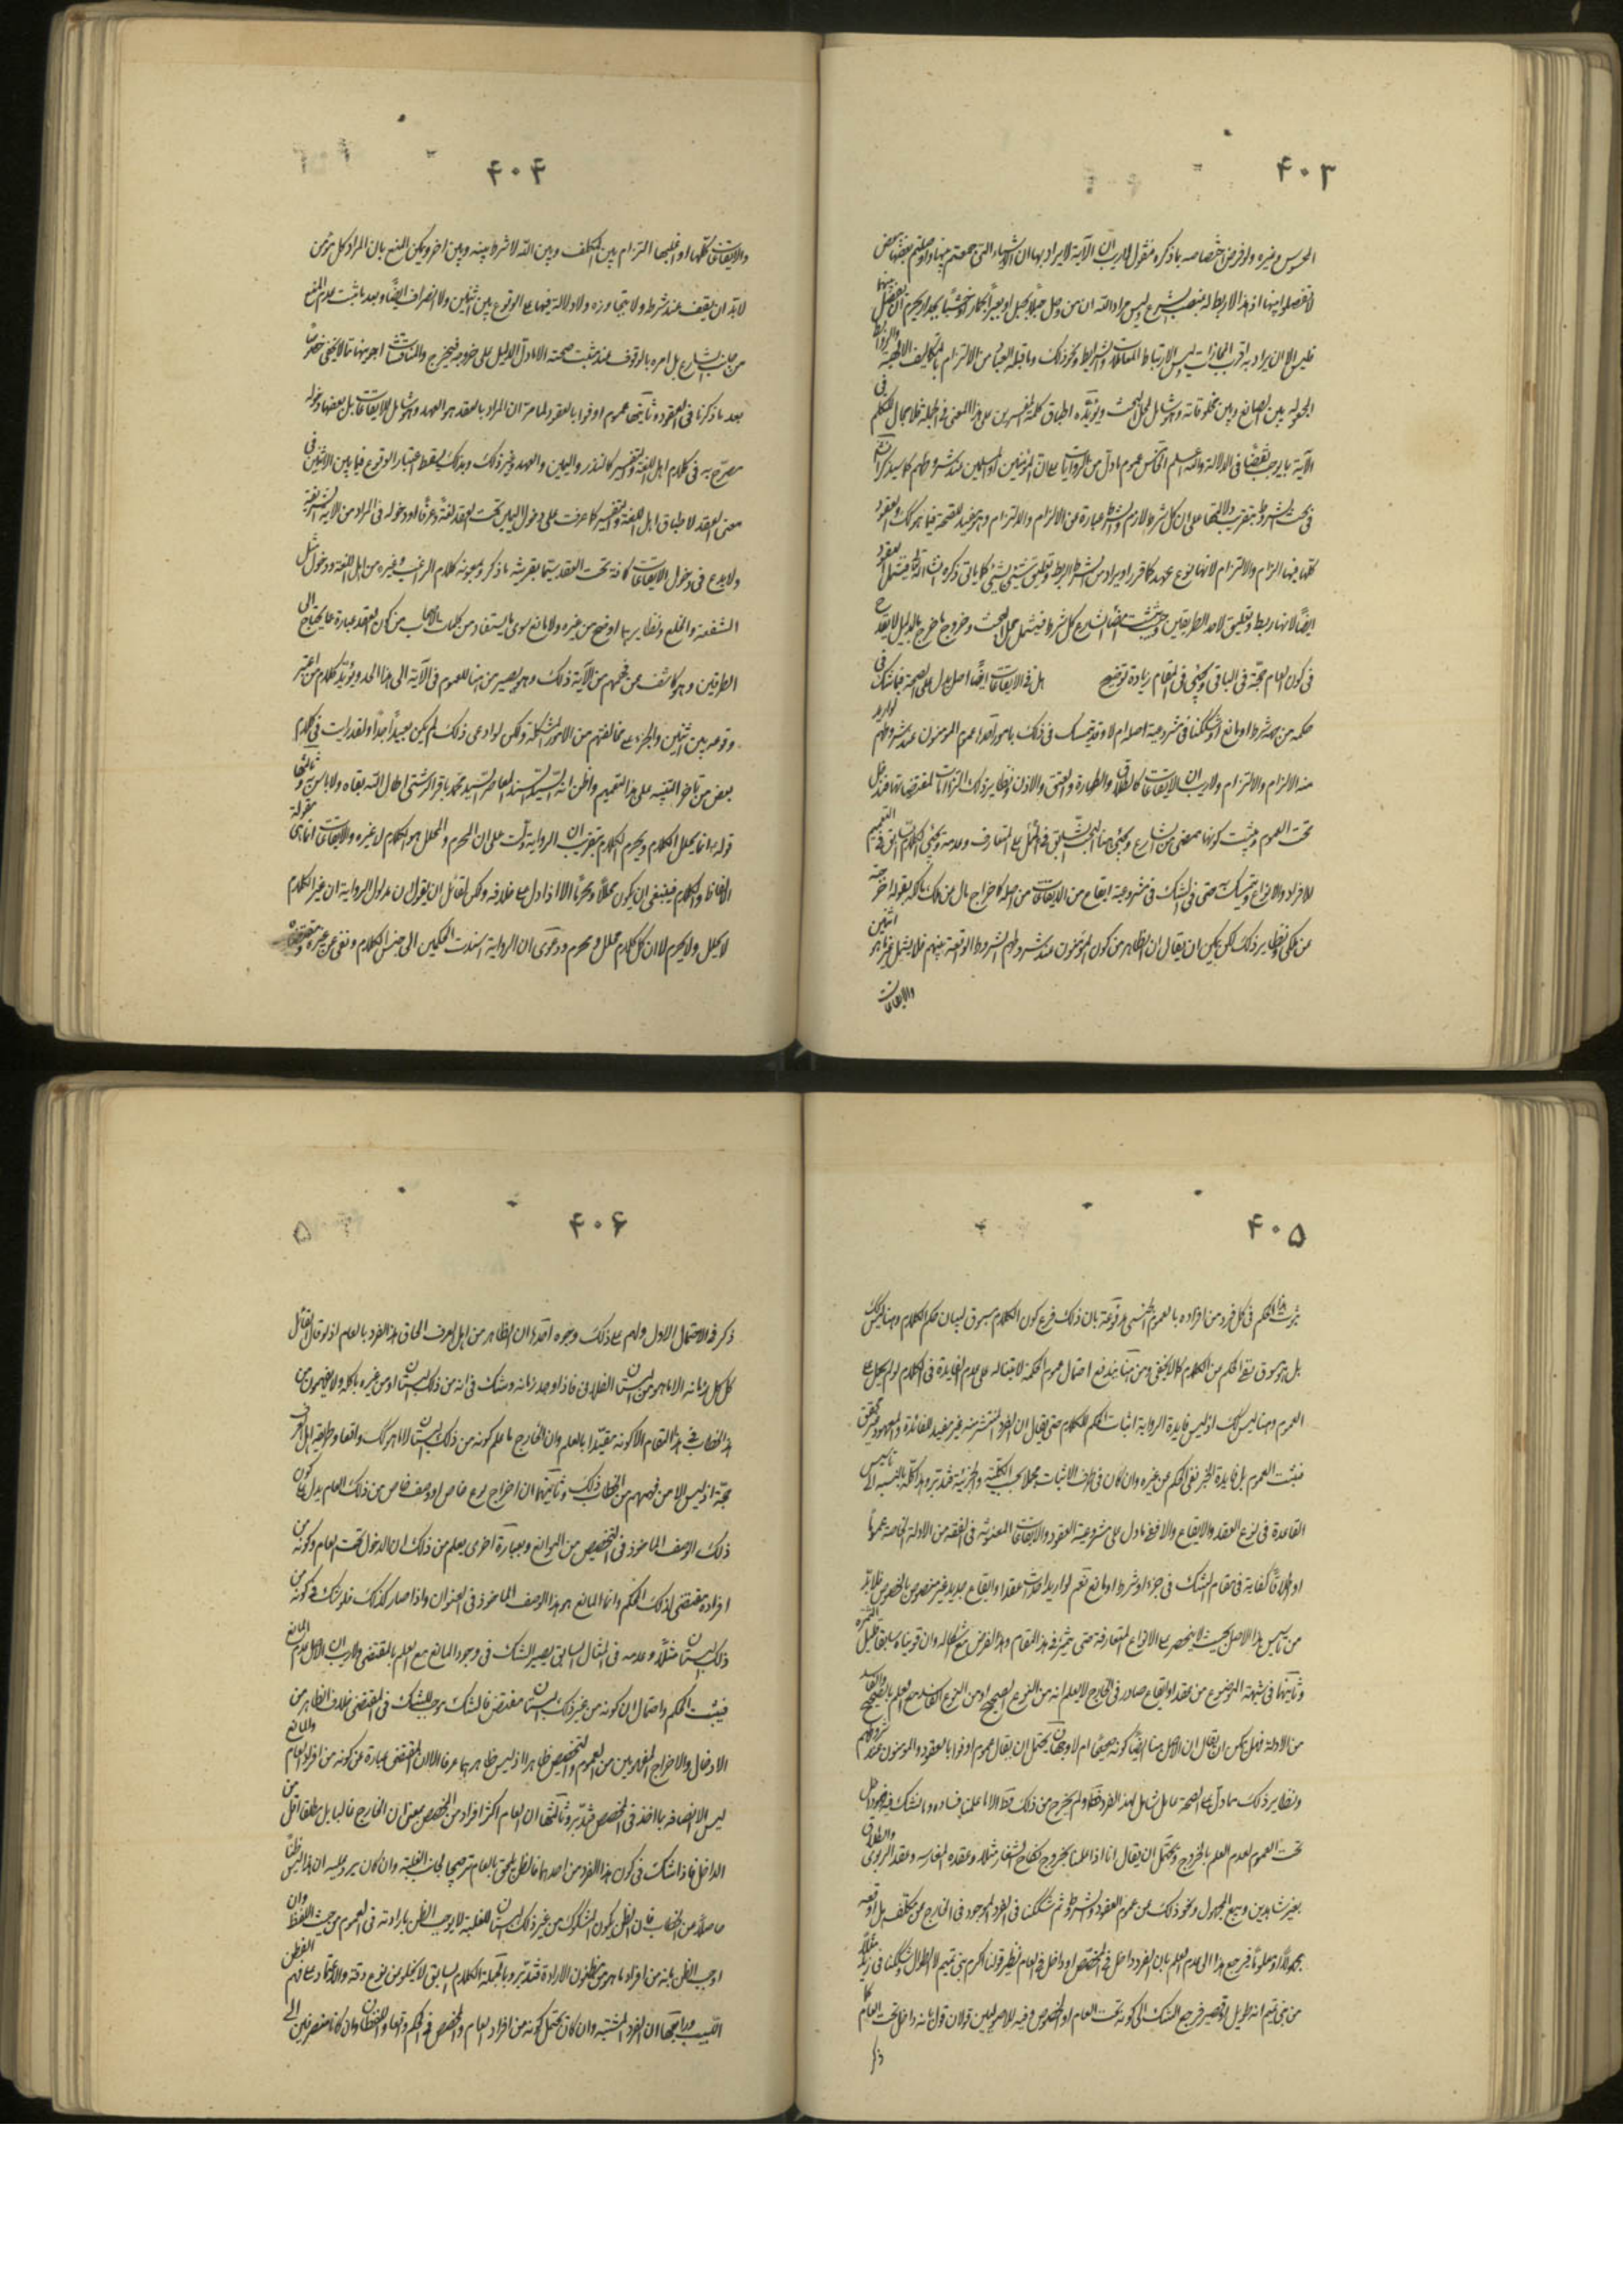 ۴۰۳
المحسوس وغيره ولو فرض اختصاصه بما ذكره فنقول لا ريب ان الآية لا يراد بها ان الاشياء التى جمعتم بينها واوصلتم بعضها ببعض
لا تفصلوا بينها اذ هذا الاربط له بمنصب الشرع وليس مراد الله ان من وصل حبلا بحبل او بعيرا بحمار او خشبا بجدار يحرم ان يفصل بينهما
فليس الا ان يراد به اقرب المجازات وليس الا ارتباط المعاملات والشرائط ونحو ذلك وما قبله العباد من الالتزام بالتكاليف الالهية والروابط
المجعولة بين الصانع وبين مخلوقاته وهو شامل لمحل البحث ويؤيده اطباق كلمة المفسرين على هذا المعنى فى الجملة فلا مجال للتكلم فى
الآية بما يوجب نقضا فى الدلالة والله اعلم الخامس عموم ما دل من الروايات على ان المؤمنين او المسلمين عند شروطهم كما سيذكر ان شاء الله
فى بحث الشروط بتقريب دلالتها على ان كل شرط لازم والشرط عبارة عن الالزام والالتزام وهو مفيد للصحة فيما هو كك والعقود
كلها فيها الزام والالتزام لانها نوع عهد كما قرر او يراد من الشرط الربط وتعليق شىء بشىء كما ياتى ذكره ان شاء الله فيشمل العقود
ايضا لانها ربط وتعليق لاحد الطريقين وحيث ثبت امضاء الشارع كل شرط فيشمل محل البحث وخروج ما خرج بالدليل لا يقدح
فى كون العام حجة فى الباقى ويجئ فى المقام زيادة توضيح هل فى الايقاعات ايضا اصل يدل على الصحة فيما شك فى
حكمه من جهة شرط او مانع او شككنا فى مشروعية اصله ام لا وقد يتمسك فى ذلك بامور احدها عموم المؤمنون عند شروطهم لو اريد
منه الالزام والالتزام ولا ريب ان الايقاعات كالطلاق والظهار والعتق والاذن ونظاير ذلك التزامات لمقتضياتها فتدخل
تحت العموم ويثبت كونها ممضى من الشارع ويجئ هنا البحث السابق فى الحمل على المتعارف وعدمه ويجئ الكلام السابق فى التعميم
للافراد والانواع ويتمسك به حتى فى الشك فى مشروعية ايقاع من الايقاعات من اصله كاخراج مال من ملك مالكه بقوله اخرجته
عن ملكى ونظاير ذلك لكن يمكن ان يقال ان الظاهر من كون المؤمنون عند شروطهم الشروط الواقعة بينهم فلا يشمل غير ما هو اثنين
والايقاعات
۴۰۴
والايقاعات كلها او اغلبها التزام بين المكلف وبين الله لا شرط بينه وبين اخر ويمكن المنع بان المراد كل مؤمن
لابد ان يقف عند شرطه ولا يتجاوزه ولا دلالة فيها على الوقوع بين اثنين ولا انصراف ايضا وبعد ما ثبت عدم المنع
من جانب الشارع بل امره بالوقوف عنده يثبت صحته الا ما دل الدليل على خروجه فيخرج والمناقشات اجوبتها مما لا يخفى خصوصا
بعد ما ذكرنا فى العقود وثانيها عموم اوفوا بالعقود لما مر ان المراد بالعقد هو العهد وهو شامل للايقاعات بل بعضها دخوله
مصرح به فى كلام اهل اللغة والتفسير كالنذر واليمين والعهد وغير ذلك وبذلك يسقط اعتبار الوقوع فيما بين الاثنين فى
معنى العقد لاطباق اهل اللغة والتفسير كما عرفت على دخول اليمين تحت العقد لغة وعرفا او دخوله فى المراد من الاية الشريفة
ولا بدع فى دخول الايقاعات كافة تحت العقد سيما بقرينة ما ذكر وبمعونة كلام الراغب وغيره من اهل اللغة ودخول مثل
الشفعة والخلع ونظايرهما اوضح من غيره ولا مانع سوى ما يستفاد من كلمات الاصحاب من كون العقد عبارة عما يحتاج الى
الطرفين وهو كاشف عن فهمهم من الآية ذلك وهو يصير من هنا للعموم فى الآية الى هذا الحد ويؤيده كلام من اعتبر
وقوعه بين اثنين والجرءة على مخالفتهم من الامور المشكلة ولكن لو ادعى ذلك لم يكن بعيدا جدا ولقد رايت فى كلام
بعض من تاخر التنبيه على هذا التعميم واظن انه السيد السند المعاصر السيد محمد باقر الرشتى اطال الله بقاه ولا باس به وثالثها
قوله ع انما يحلل الكلام ويحرم الكلام بتقريب ان الرواية دلت على ان المحرم والمحلل هو الكلام لا غيره والايقاعات انما هى مقولة
الالفاظ والكلام فينبغى ان يكون محللا ومحرما الا اذا دل على خلافه ولكن لقائل ان يقول ان مدلول الرواية ان غير الكلام
لا يحلل ولا يحرم لا ان كل كلام محلل ومحرم ودعوى ان الرواية اسندت الحكمين الى جنس الكلام ونفى عن غيره
۴۰۵
ثبوت هذا الحكم فى كل فرد من افراده بالعموم الجنسى مدفوعة بان ذلك فرع كون الكلام مسوق لبيان حكم الكلام وهنا ليس كك
بل هو مسوق لنفى الحكم من الكلام كما لا يخفى ومن هنا يندفع احتمال عموم الحكمة لابتنائه على عدم الفايدة فى الكلام لو لم يحمل على
العموم وهنا ليس كك اذ ليس فايدة الرواية اثبات الحكم للكلام حتى يقال ان الفرد المنتشر منه غير مفيد للفائدة والمعهود غير محقق
فيثبت العموم بل فايدة الخبر نفى الحكم عن غيره وان كان فى طرف الاثبات مجملا بحسب الكلية والجزئية فتدبر وهذا كله بالنسبة الى تاسيس
القاعدة فى نوع العقد والايقاع والا ففيما دل على مشروعية العقود والايقاعات المعنونة فى الفقه من الادلة الخاصة عموما
او اطلاقا كفاية فى مقام الشك فى جزء او شرط او مانع نعم لو اريد احداث عقد او ايقاع جديد غير منصوص بالخصوص فلابد
من تاسيس هذا الاصل بحيث لا ينحصر على الانواع المتعارفة حتى يثمر فى هذا المقام وهذا الفرض مع اشكاله وان قويناه سابقا قليل الثمرة
وثانيها فى شبهة الموضوع من عقد او ايقاع صادر فى الخارج لا يعلم انه من النوع الصحيح او من النوع الفاسد مع العلم بالصحيح والفاسد
من الادلة فهل يمكن ان يقال ان الاصل هنا ايضا كونه صحيحا ام لا وجهان يحتمل ان يقال عموم اوفوا بالعقود والمؤمنون عند شروطهم
ونظاير ذلك مما دل على الصحة عام شامل لهذا الفرد قطعا ولم يخرج من ذلك قط الا ما علمنا فساده وما نشك فيه فهو داخل
تحت العموم لعدم العلم بالخروج ويحتمل ان يقال انا اذا علمنا بخروج نكاح الشغار مثلا وعقده الفارسية وعقد الربوى والطلاق
بغير شاهدين وبيع المجهول ونحو ذلك عن عموم العقود والشروط ثم شككنا فى الفرد الموجود فى الخارج من مكلف بل اوقعه
مجهولا او معلوما فيرجع هذا الى عدم العلم بان الفرد داخل فى المخصص او داخل فى العام نظير قولنا اكرم بنى تميم الا الطوال وشككنا فى زيد مثلا
من بنى تميم انه طويل او قصير فيرجع الشك الى كونه تحت العام او المخصوص وفيه للاصوليين قولان قول بانه داخل تحت العام كما
ذكر
۴۰۶
ذكر فى الاحتمال الاول ولهم على ذلك وجوه احدها ان الظاهر من اهل العرف الحاق هذا الفرد بالعام اذ لو قال القائل
كل كل رمانة الا ما هو من البستان الفلانى فاذا وجد رمانة وشك فى انه من ذلك البستان او من غيره ياكله ولا يفهمون من
هذا الخطاب فى هذا المقام الا كونه مقيدا بالعلم وان الخارج ما علم كونه من ذلك البستان لا ما هو كك واقعا وطريقة اهل العرف
حجة اذ ليس الا من فهمهم من الخطاب ذلك وثانيها ان اخراج نوع خاص او وصف خاص من ذلك العام يدل على كون
ذلك الوصف الماخوذ فى التخصيص من الموانع وبعبارة اخرى يعلم من ذلك ان الدخول تحت العام وكونه من
افراده مقتضى لذلك الحكم وانما المانع هو هذا الوصف الماخوذ فى العنوان واذا صار كذلك فلو شك فى كونه من
ذلك البستان مثلا وعدمه فى المثال السابق يصير الشك فى وجود المانع مع العلم بالمقتضى ولا ريب ان الاصل عدم المانع
فيثبت الحكم واحتمال ان كونه من غير ذلك البستان مقتض فالشك موجب للشك فى المقتضى خلاف الظاهر من
الادخال والاخراج المفهومين من العموم والتخصيص ظاهرا اذ ليس ظاهرهما عرفا الا ان المقتضى عبارة عن كونه من افراد العام والمانع
ليس الا اتصافه بما اخذ فى المخصص فتدبر وثالثها ان العام اكثر افرادا من المخصص بمعنى ان الخارج غالبا بل مطلقا اقل من
الداخل فاذا شك فى كون هذا الفرد من احدهما فالظن يلحق بالعام ترجيحا لجانب الغلبة وان كان يرد عليه ان هذا ليس ظنا
حاصلا من الخطاب فان الظن بكون المشكوك من غير ذلك البستان للغلبة لا يوجب الظن بارادته فى العموم من حيث اللفظ وان
اوجب الظن بانه من افراد ما هو مظنون الارادة فتدبر وبالجملة الكلام السابق لا يخلو من نوع دقة والاعتماد على فهم الفطن
اللبيب ورابعها ان الفرد المشتبه وان كان يحتمل كونه من افراد العام والمخصص فى الحكم واقعا واللفظان وان كانا منصرفين الى